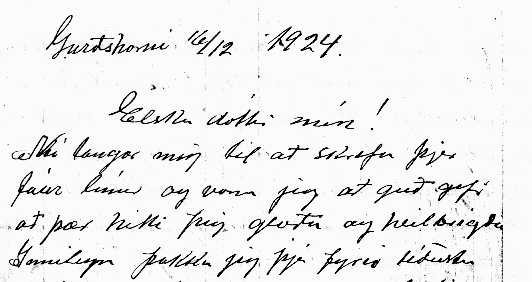 Gurðshorni 16/12 1924.
Elsku dóttir mín!
Nú langar mig til at skrifa þjer
fáar línur og vona jeg at guð gefi
at þær hitti þig glaða og heilbrygða
Innilega þakka jeg þjer fyrir síðasta